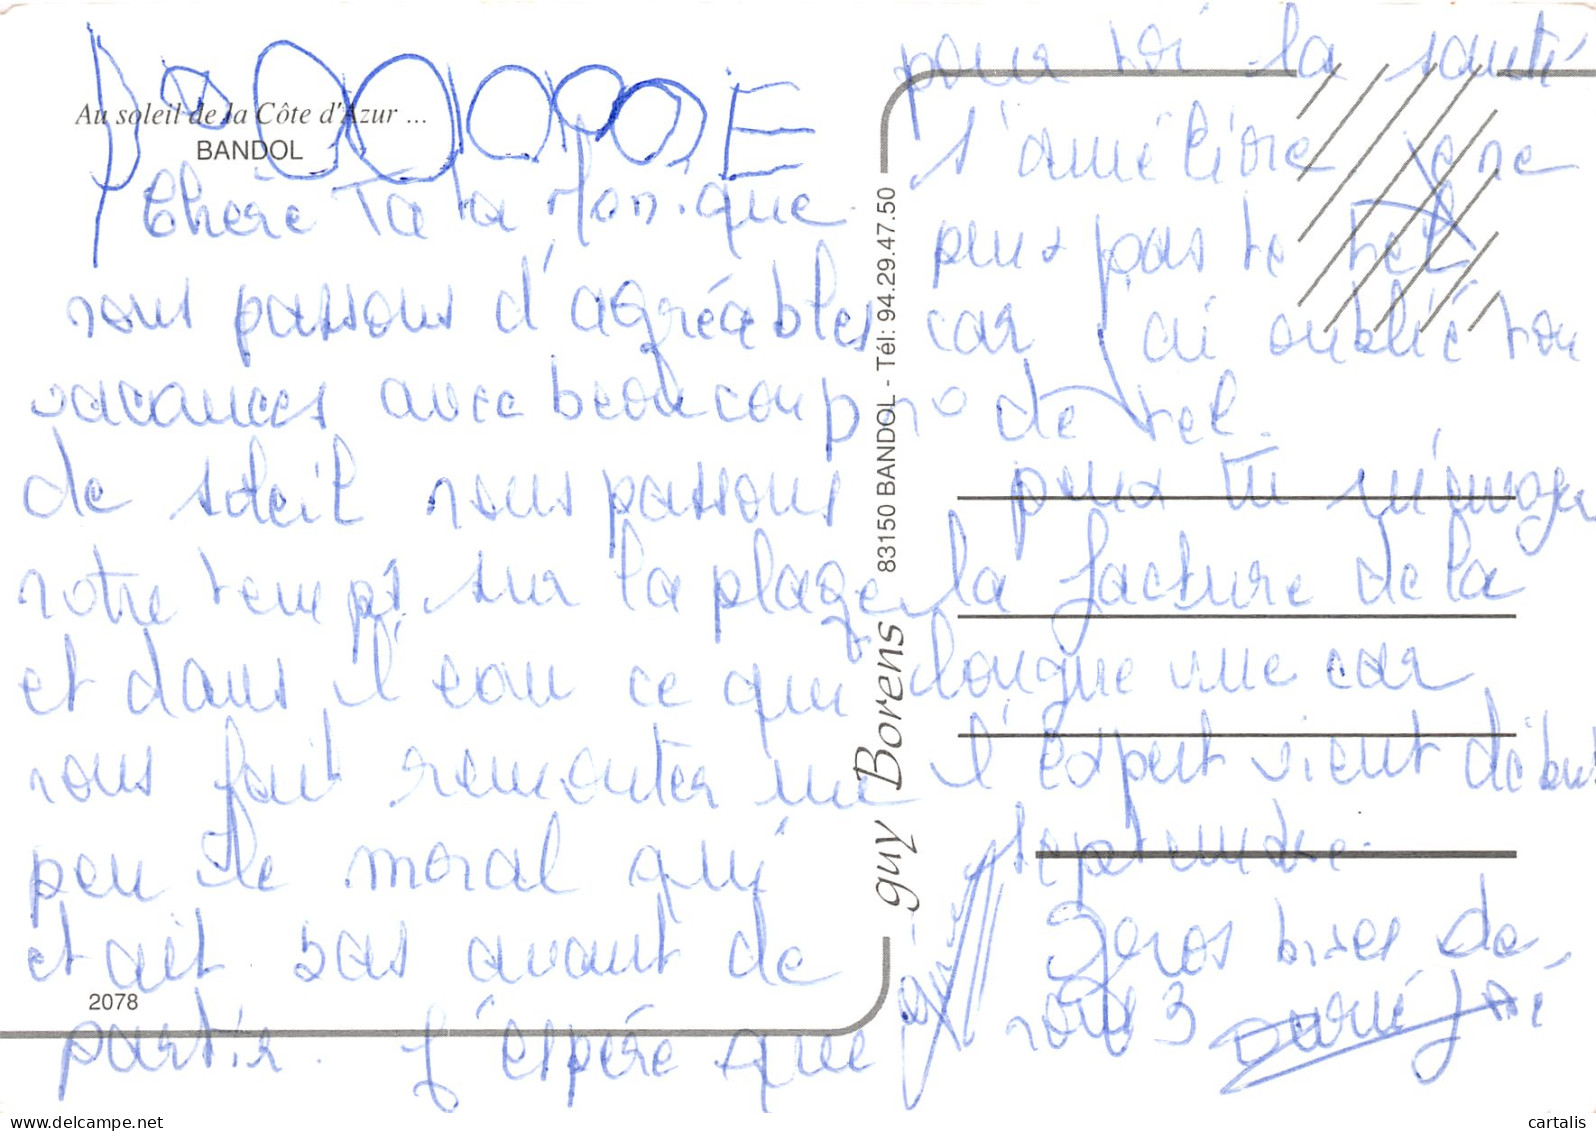 Au soleil de la Côte d'Azur ...
BANDOL
Chère Tata Monique
nous passons d'agréables
vacances avec beaucoup
de soleil nous passons
notre temps sur la plage
et dans l'eau ce qui
nous fait remonter un
peu le moral qui
etait bas avant de
partir. J'éspére que
2078
guy Borens 83150 BANDOL - Tél: 94.29.47.50
pour toi la santé
s'améliore je ne
peux pas te tel
car j'ai oublié ton
n° de tel.
peux tu m'envoyer
la facture de la
longue vue car
l'expert vient début
septembre.
Gros bises de
nous 3
cartalis
delcampe.net